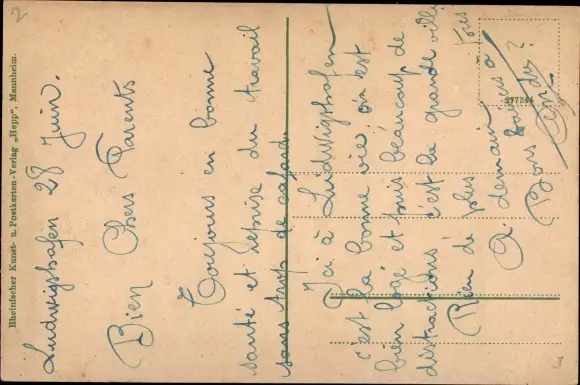 Rheinischer Kunst- u. Postkarten-Verlag „Hepp“, Mannheim.
2
Ludwigshafen 28 Juin.
Bien Chers Parents
Toujours en bonne
santé et reprise du travail
sans trop de cafard.
Ici à Ludwigshafen
c'est la bonne vie on est
bien logé et puis beaucoup de
distractions c'est la grande ville
Rien de plus
A demain
Bons
277344